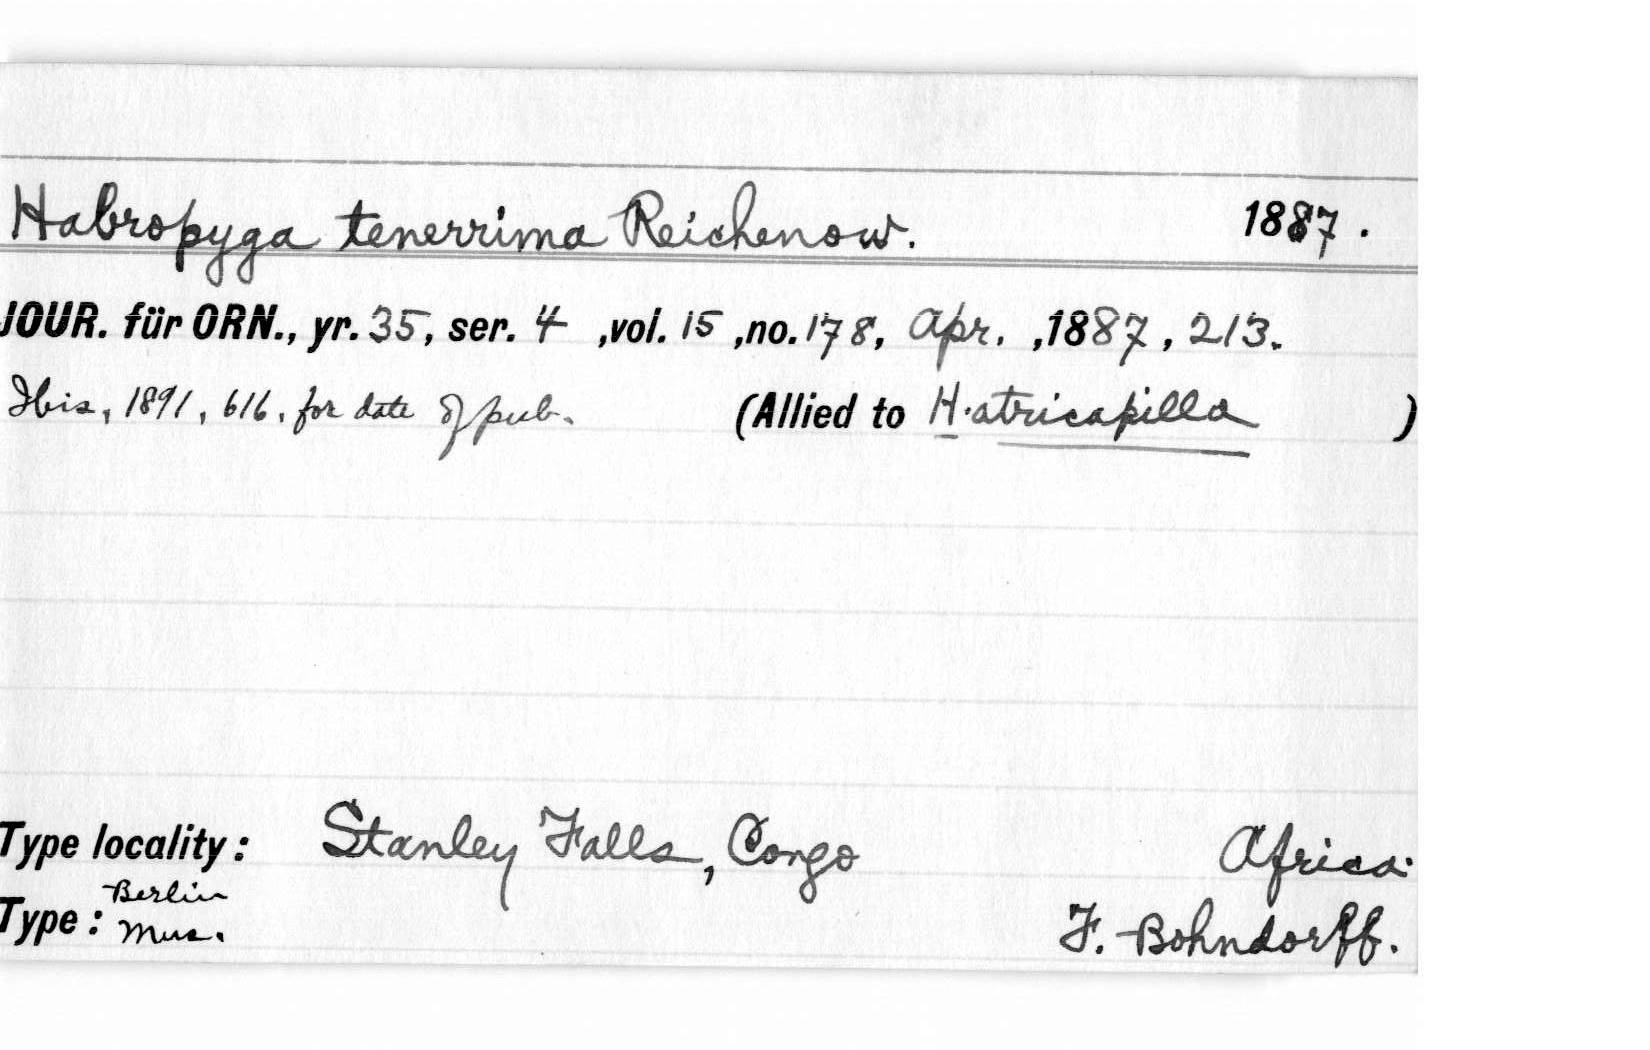 Habropyga tenerrima Reichenow. 1887.
JOUR. für ORN., yr. 35, ser. 4 ,vol. 15 ,no. 178, Apr. ,1887, 213.
Ibis, 1891, 616, for date of pub. (Allied to H. atricapilla )
Type locality: Stanley Falls, Congo Africa.
Type: Berlin Mus. F. Bohndorff.